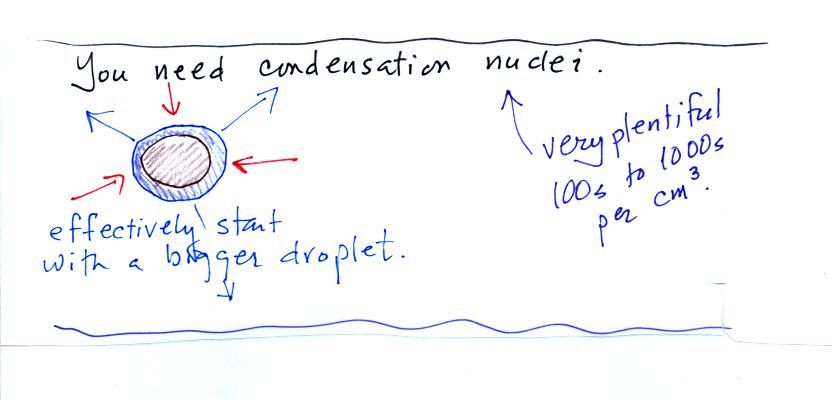 You need condensation nuclei.
very plentiful
100s to 1000s
per cm³.
effectively start
with a bigger droplet.